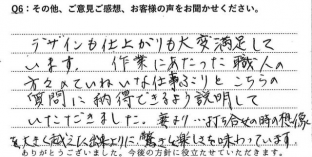 Q6：その他、ご意見ご感想、お客様の声をお聞かせください。
デザインも仕上がりも大変満足して
います。 作業にあたった職人の
方々のていねいな仕事ぶりと こちらの
質問に納得できるよう説明して
いただきました。 妻より… 打ち合せの時の想像
を大きく越えた出来上りに、驚きも楽しさも味わっています
ありがとうございました。今後の方針に役立たせていただきます。